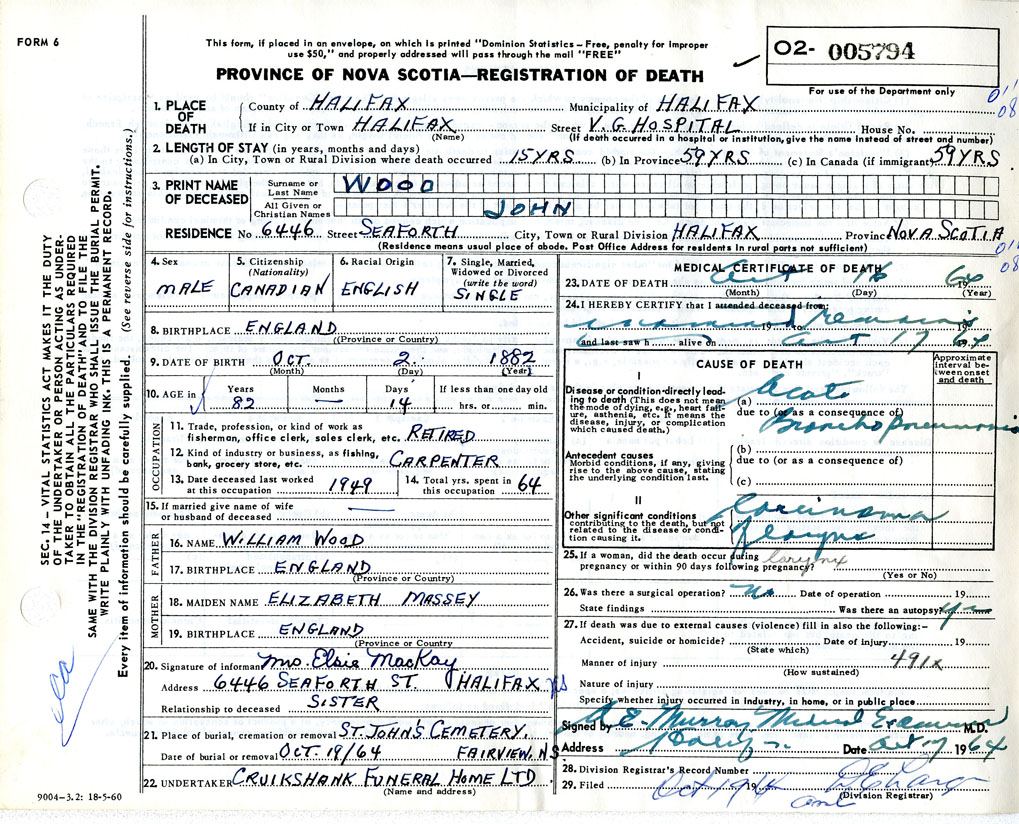 FORM 6
This form, if placed in an envelope, on which is printed "Dominion Statistics – Free, penalty for improper
use $50," and properly addressed will pass through the mail "FREE"
PROVINCE OF NOVA SCOTIA—REGISTRATION OF DEATH
02- 005794
For use of the Department only
SEC. 14 – VITAL STATISTICS ACT MAKES IT THE DUTY
OF THE UNDERTAKER OR PERSON ACTING AS UNDER-
TAKER TO OBTAIN ALL THE PARTICULARS REQUIRED
IN THE "REGISTRATION OF DEATH" AND TO FILE THE
SAME WITH THE DIVISION REGISTRAR WHO SHALL ISSUE THE BURIAL PERMIT.
WRITE PLAINLY WITH UNFADING INK. THIS IS A PERMANENT RECORD.
Every item of information should be carefully supplied. (See reverse side for instructions.)
1. PLACE OF DEATH
County of HALIFAX Municipality of HALIFAX
If in City or Town HALIFAX Street V.G. HOSPITAL House No.
(Name) (If death occurred in a hospital or institution, give the name instead of street and number)
2. LENGTH OF STAY (in years, months and days)
(a) In City, Town or Rural Division where death occurred 15 YRS (b) In Province 59 YRS (c) In Canada (if immigrant) 59 YRS
3. PRINT NAME OF DECEASED
Surname or Last Name WOOD
All Given or Christian Names JOHN
RESIDENCE No 6446 Street SEAFORTH City, Town or Rural Division HALIFAX Province NOVA SCOTIA
(Residence means usual place of abode. Post Office Address for residents in rural parts not sufficient)
4. Sex
MALE
5. Citizenship
(Nationality)
CANADIAN
6. Racial Origin
ENGLISH
7. Single, Married,
Widowed or Divorced
(write the word)
SINGLE
8. BIRTHPLACE ENGLAND
(Province or Country)
9. DATE OF BIRTH OCT. 2 1882
(Month) (Day) (Year)
10. AGE in
Years Months Days If less than one day old
82 — 14 hrs. or min.
OCCUPATION
11. Trade, profession, or kind of work as
fisherman, office clerk, sales clerk, etc. RETIRED
12. Kind of industry or business, as fishing,
bank, grocery store, etc. CARPENTER
13. Date deceased last worked
at this occupation 1949
14. Total yrs. spent in
this occupation 64
15. If married give name of wife
or husband of deceased —
FATHER
16. NAME WILLIAM WOOD
17. BIRTHPLACE ENGLAND
(Province or Country)
MOTHER
18. MAIDEN NAME ELIZABETH MASSEY
19. BIRTHPLACE ENGLAND
(Province or Country
20. Signature of informant Mrs. Elsie MacKay
Address 6446 SEAFORTH ST. HALIFAX NS
Relationship to deceased SISTER
21. Place of burial, cremation or removal ST. JOHN'S CEMETERY,
Date of burial or removal OCT. 19/64 FAIRVIEW, NS
22. UNDERTAKER CRUIKSHANK FUNERAL HOME LTD
(Name and address)
9004-3.2: 18-5-60
MEDICAL CERTIFICATE OF DEATH
23. DATE OF DEATH Oct 16 1964
(Month) (Day) (Year)
24. I HEREBY CERTIFY that I attended deceased from:
examined 19 to remains 19
and last saw h alive on Oct 17 64
CAUSE OF DEATH
Approximate
interval be-
tween onset
and death
I
Disease or condition-directly lead-
ing to death (This does not mean
the mode of dying, e.g., heart fail-
ure, asthenia, etc. It means the
disease, injury, or complication
which caused death.)
(a) Acute
due to (or as a consequence of)
Bronchopneumonia
Antecedent causes
Morbid conditions, if any, giving
rise to the above cause, stating
the underlying condition last.
(b)
due to (or as a consequence of)
(c)
II
Other significant conditions
contributing to the death, but not
related to the disease or condi-
tion causing it.
Carcinoma
larynx
25. If a woman, did the death occur during larynx
pregnancy or within 90 days following pregnancy?
(Yes or No)
26. Was there a surgical operation? No Date of operation 19
State findings Was there an autopsy? yes
27. If death was due to external causes (violence) fill in also the following:–
Accident, suicide or homicide? Date of injury 19
(State which)
Manner of injury 491X
(How sustained)
Nature of injury
Specify whether injury occurred in Industry, in home, or in public place
Signed by A.E. Murray Medical Examiner M.D.
Address Date Oct 17 1964
28. Division Registrar's Record Number
29. Filed Oct 19 64
(Division Registrar)